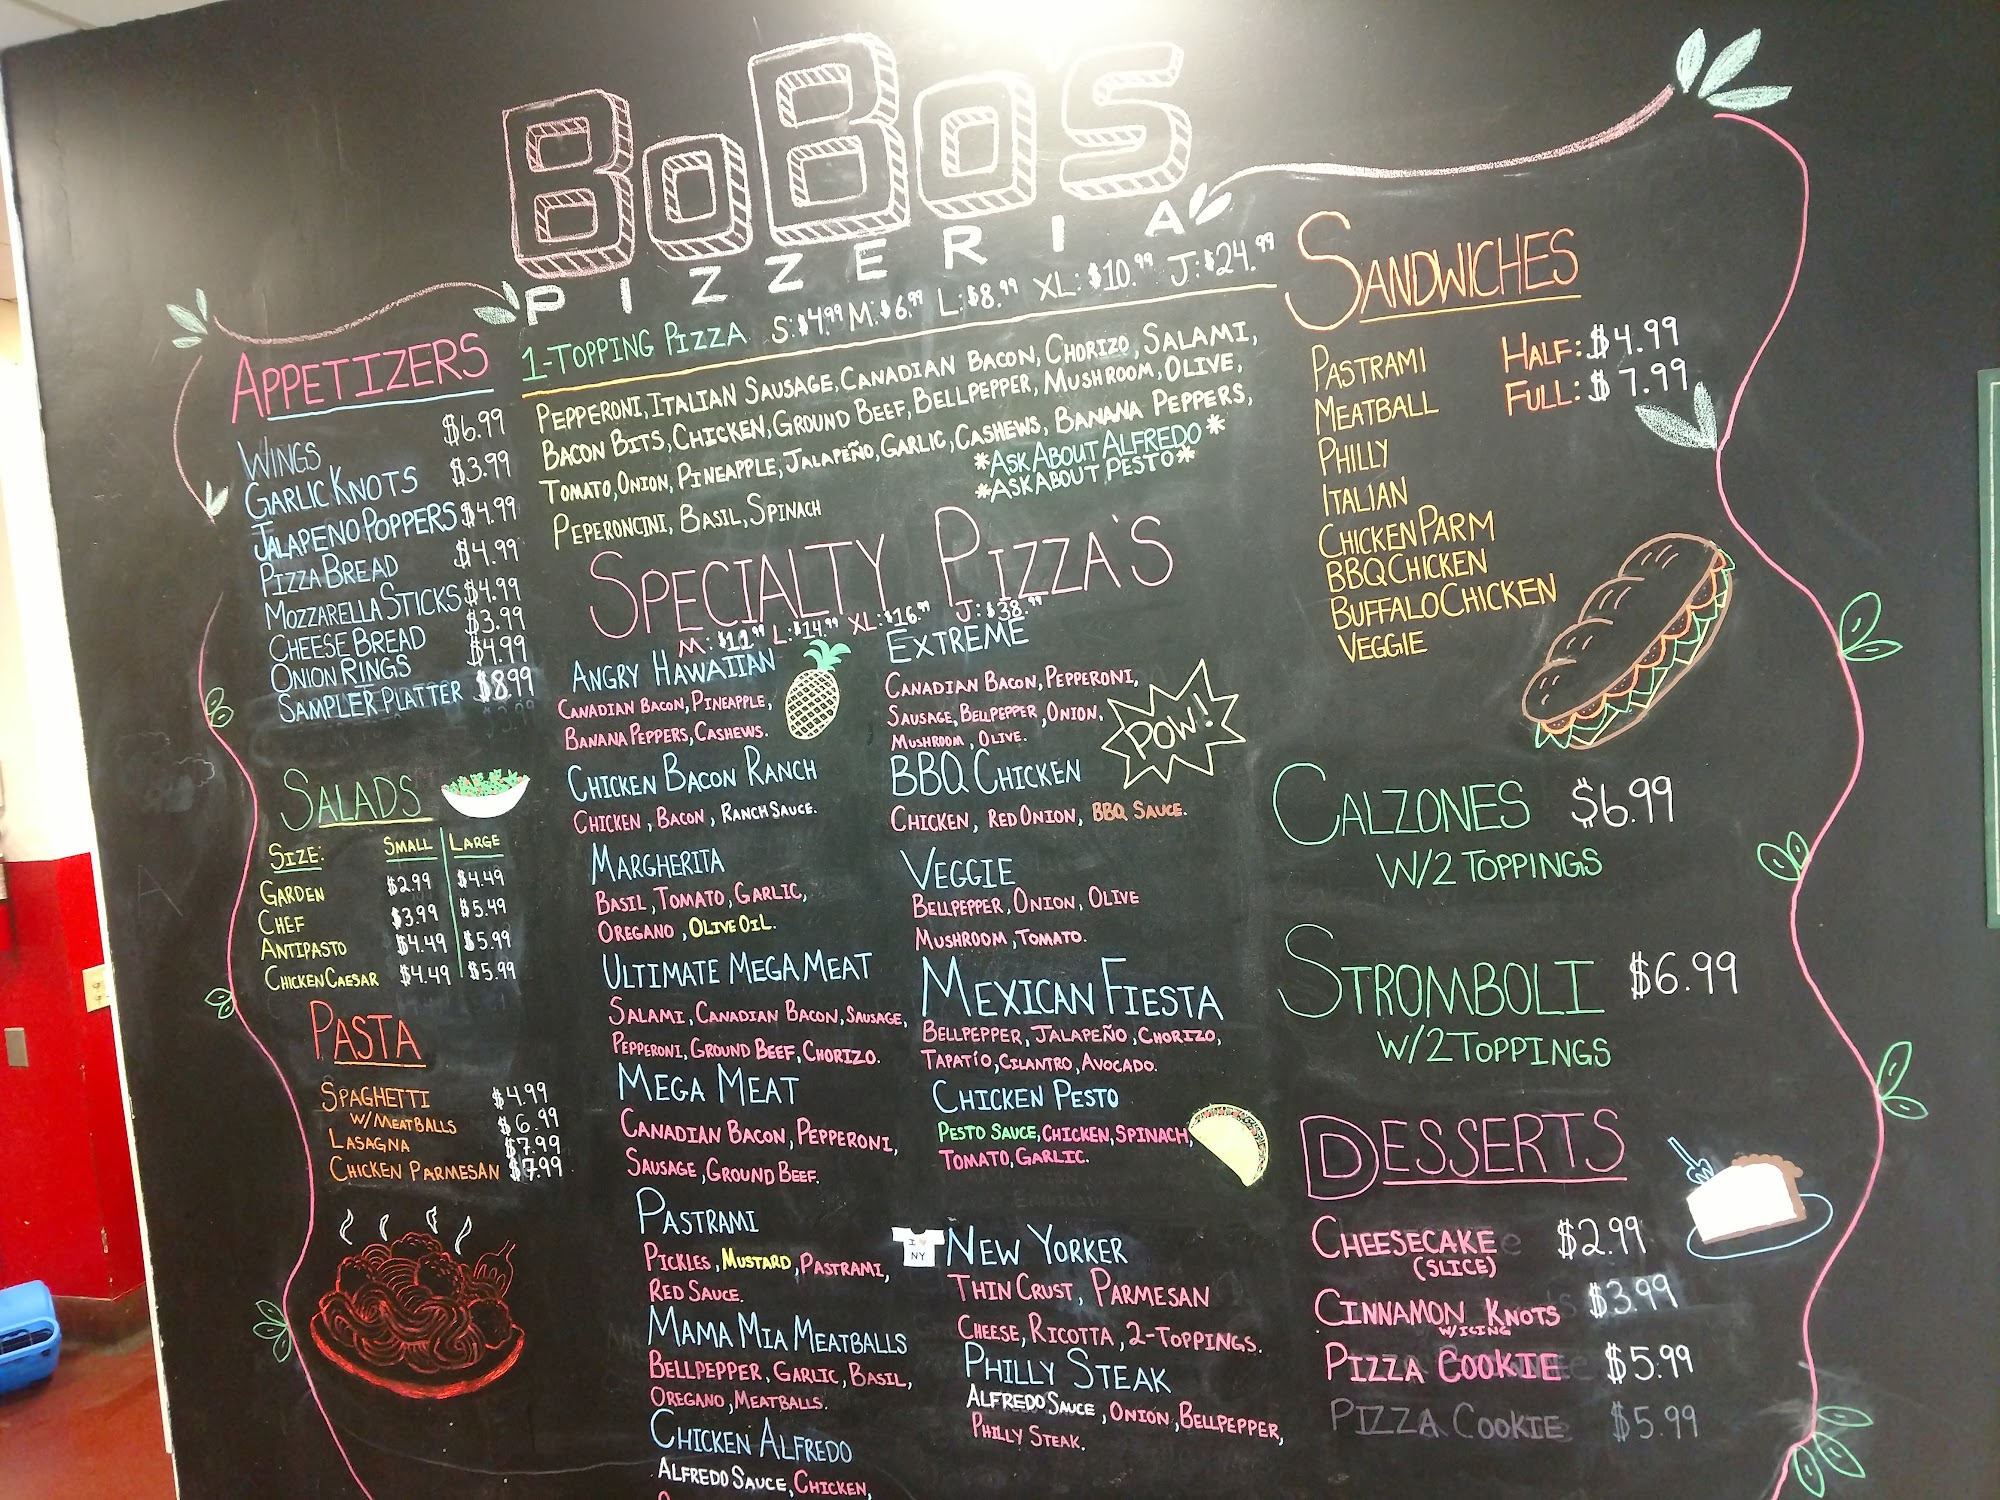 BoBoS
PIZZERIA
1-TOPPING PIZZA S:$4.99 M:$6.99 L:$8.99 XL:$10.99 J:$24.99
PEPPERONI, ITALIAN SAUSAGE, CANADIAN BACON, CHORIZO, SALAMI,
BACON BITS, CHICKEN, GROUND BEEF, BELLPEPPER, MUSHROOM, OLIVE,
TOMATO, ONION, PINEAPPLE, JALAPEÑO, GARLIC, CASHEWS, BANANA PEPPERS,
PEPERONCINI, BASIL, SPINACH
*ASK ABOUT ALFREDO*
*ASK ABOUT PESTO*
APPETIZERS
WINGS $6.99
GARLIC KNOTS $3.99
JALAPENO POPPERS $4.99
PIZZA BREAD $4.99
MOZZARELLA STICKS $4.99
CHEESE BREAD $3.99
ONION RINGS $4.99
SAMPLER PLATTER $8.99
SALADS
SIZE: SMALL LARGE
GARDEN $2.99 $4.49
CHEF $3.99 $5.49
ANTIPASTO $4.49 $5.99
CHICKEN CAESAR $4.49 $5.99
PASTA
SPAGHETTI $4.99
W/MEATBALLS $6.99
LASAGNA $7.99
CHICKEN PARMESAN $7.99
SPECIALTY PIZZA'S
M:$11.99 L:$14.99 XL:$16.99 J:$38.99
ANGRY HAWAIIAN
CANADIAN BACON, PINEAPPLE,
BANANA PEPPERS, CASHEWS.
CHICKEN BACON RANCH
CHICKEN, BACON, RANCH SAUCE.
MARGHERITA
BASIL, TOMATO, GARLIC,
OREGANO, OLIVE OIL.
ULTIMATE MEGA MEAT
SALAMI, CANADIAN BACON, SAUSAGE,
PEPPERONI, GROUND BEEF, CHORIZO.
MEGA MEAT
CANADIAN BACON, PEPPERONI,
SAUSAGE, GROUND BEEF.
PASTRAMI
PICKLES, MUSTARD, PASTRAMI,
RED SAUCE.
MAMA MIA MEATBALLS
BELLPEPPER, GARLIC, BASIL,
OREGANO, MEATBALLS.
CHICKEN ALFREDO
ALFREDO SAUCE, CHICKEN,
EXTREME
CANADIAN BACON, PEPPERONI,
SAUSAGE, BELLPEPPER, ONION,
MUSHROOM, OLIVE.
POW!
BBQ CHICKEN
CHICKEN, RED ONION, BBQ SAUCE.
VEGGIE
BELLPEPPER, ONION, OLIVE
MUSHROOM, TOMATO.
MEXICAN FIESTA
BELLPEPPER, JALAPEÑO, CHORIZO,
TAPATÍO, CILANTRO, AVOCADO.
CHICKEN PESTO
PESTO SAUCE, CHICKEN, SPINACH,
TOMATO, GARLIC.
I ♥
NY
NEW YORKER
THIN CRUST, PARMESAN
CHEESE, RICOTTA, 2-TOPPINGS.
PHILLY STEAK
ALFREDO SAUCE, ONION, BELLPEPPER,
PHILLY STEAK.
SANDWICHES
HALF: $4.99
FULL: $7.99
PASTRAMI
MEATBALL
PHILLY
ITALIAN
CHICKEN PARM
BBQ CHICKEN
BUFFALO CHICKEN
VEGGIE
CALZONES $6.99
W/2 TOPPINGS
STROMBOLI $6.99
W/2 TOPPINGS
DESSERTS
CHEESECAKE $2.99
(SLICE)
CINNAMON KNOTS $3.99
W/ICING
PIZZA COOKIE $5.99
PIZZA COOKIE $5.99